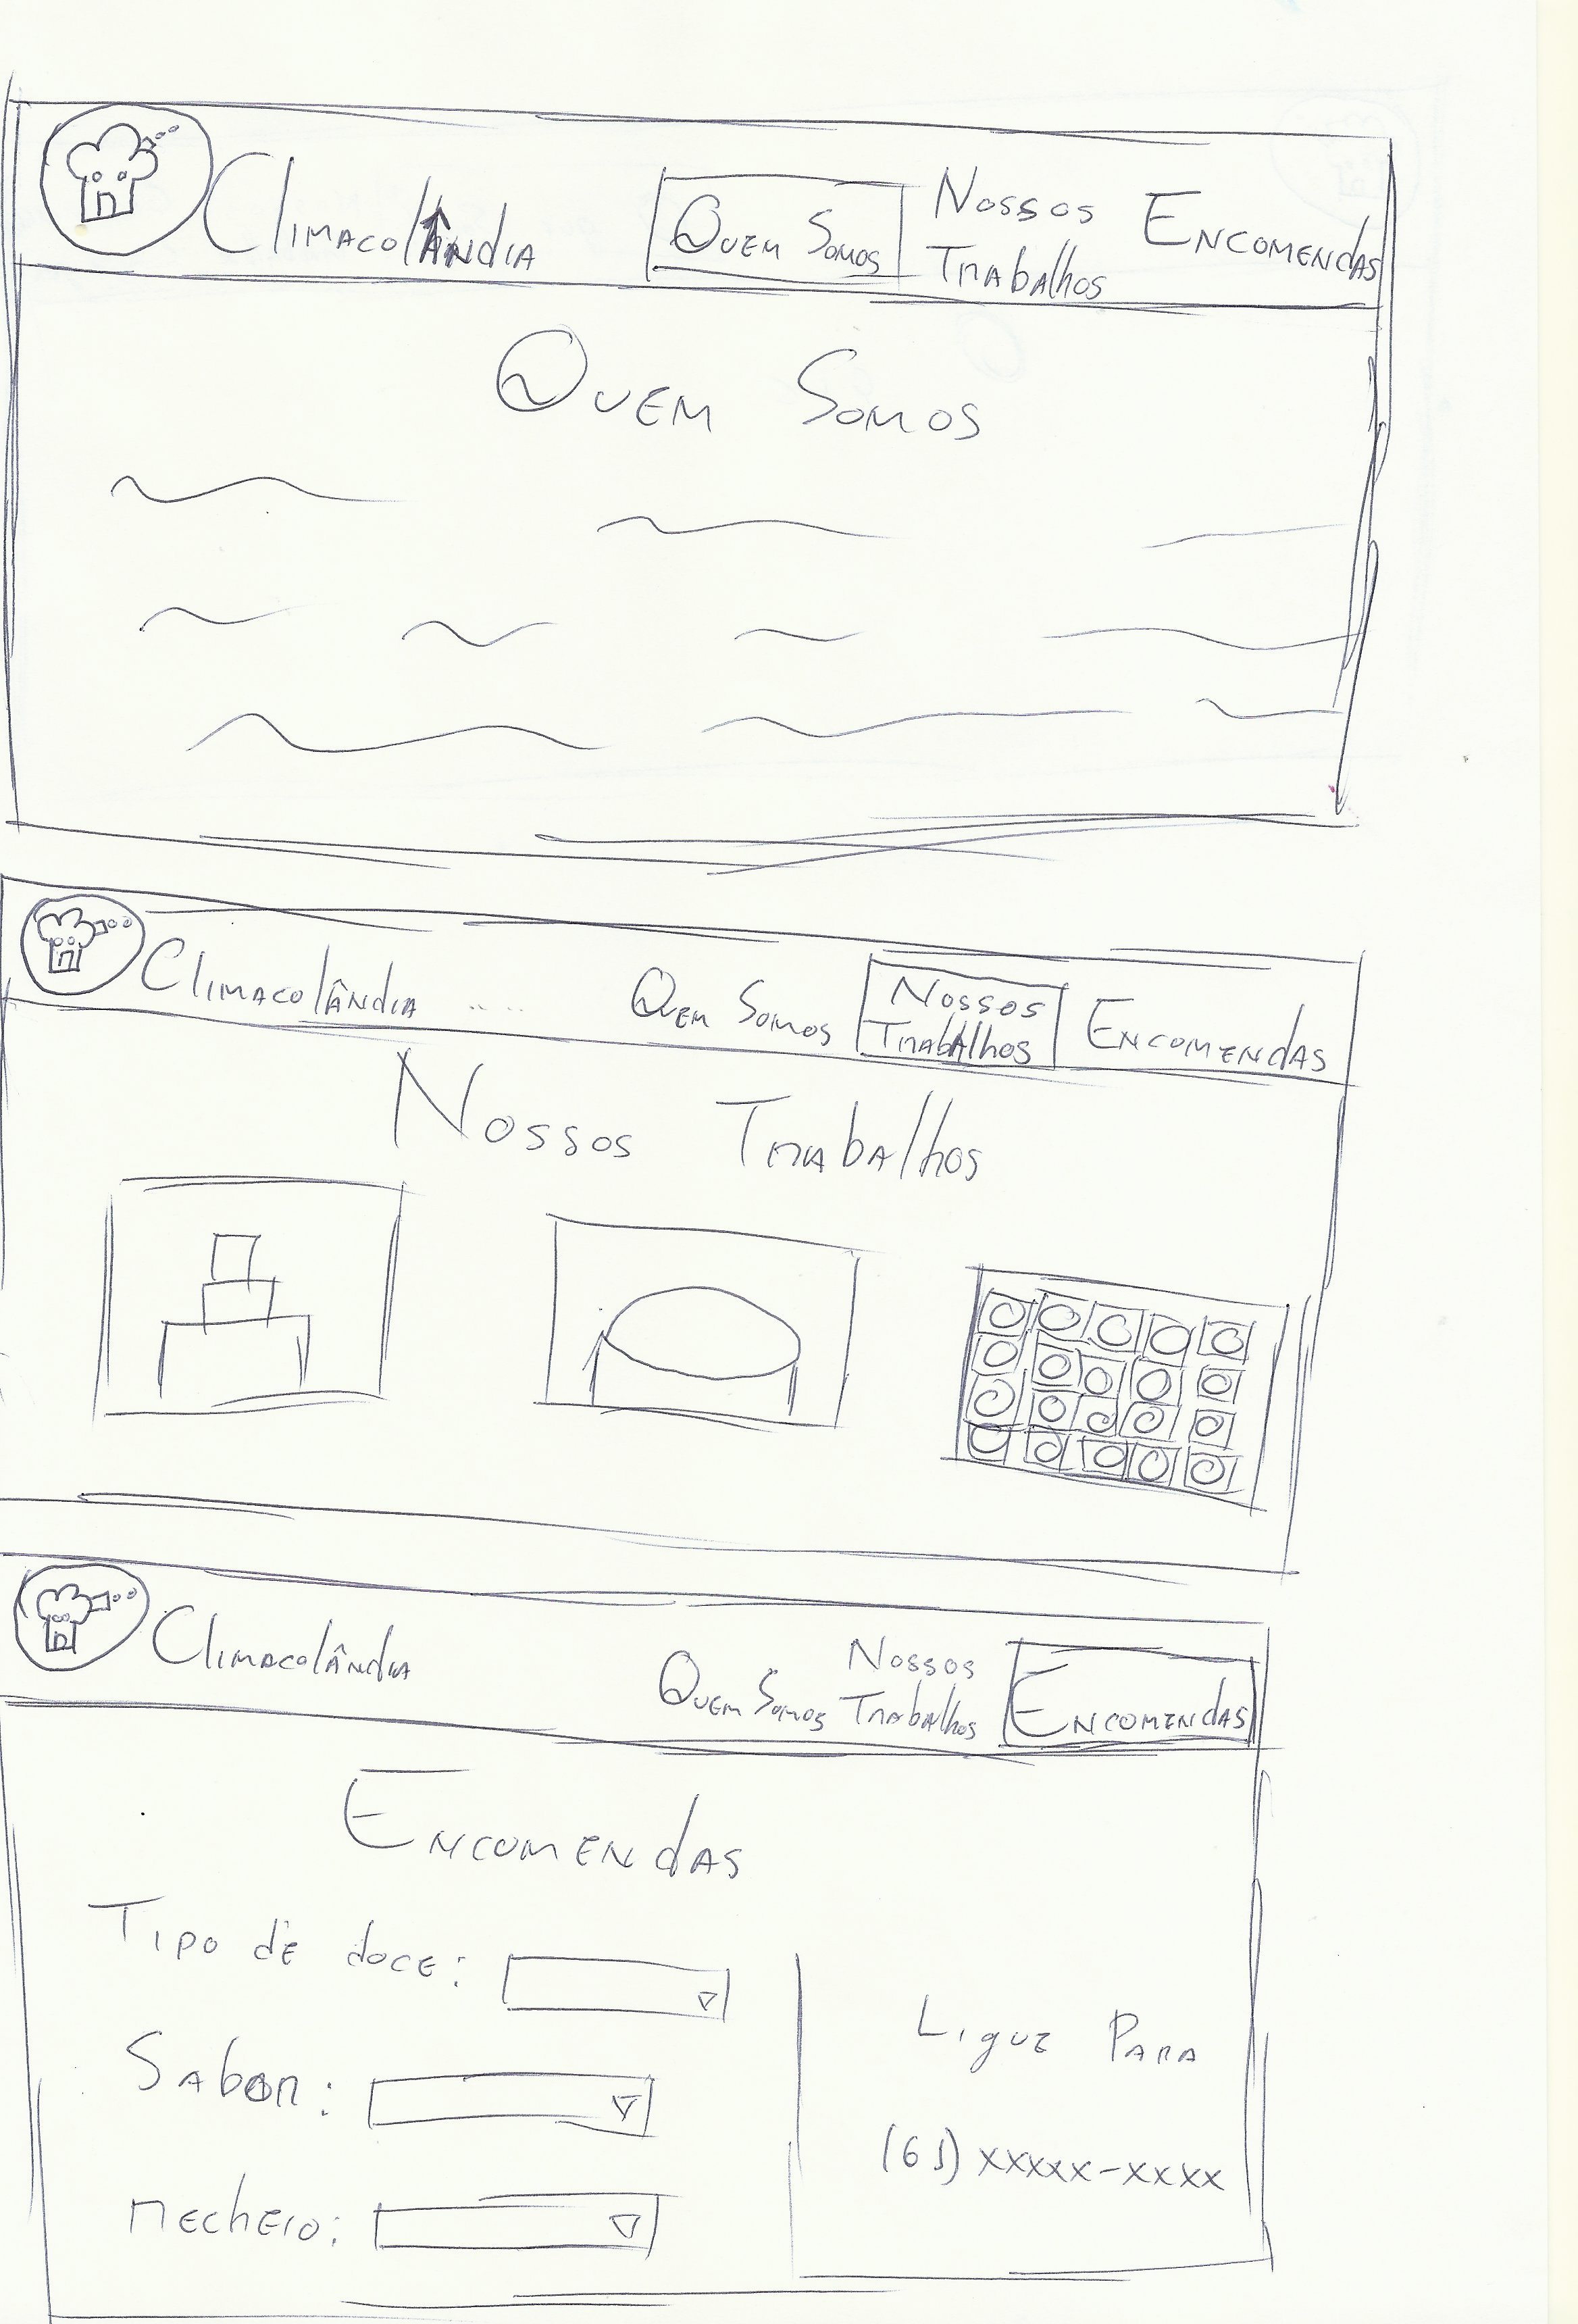 Climacolândia Quem Somos Nossos Trabalhos Encomendas
Quem Somos
Climacolândia .... Quem Somos Nossos Trabalhos Encomendas
Nossos Trabalhos
Climacolândia Quem Somos Nossos Trabalhos Encomendas
Encomendas
Tipo de doce:
Sabor:
recheio:
Ligue Para
(61) xxxxx-xxxx